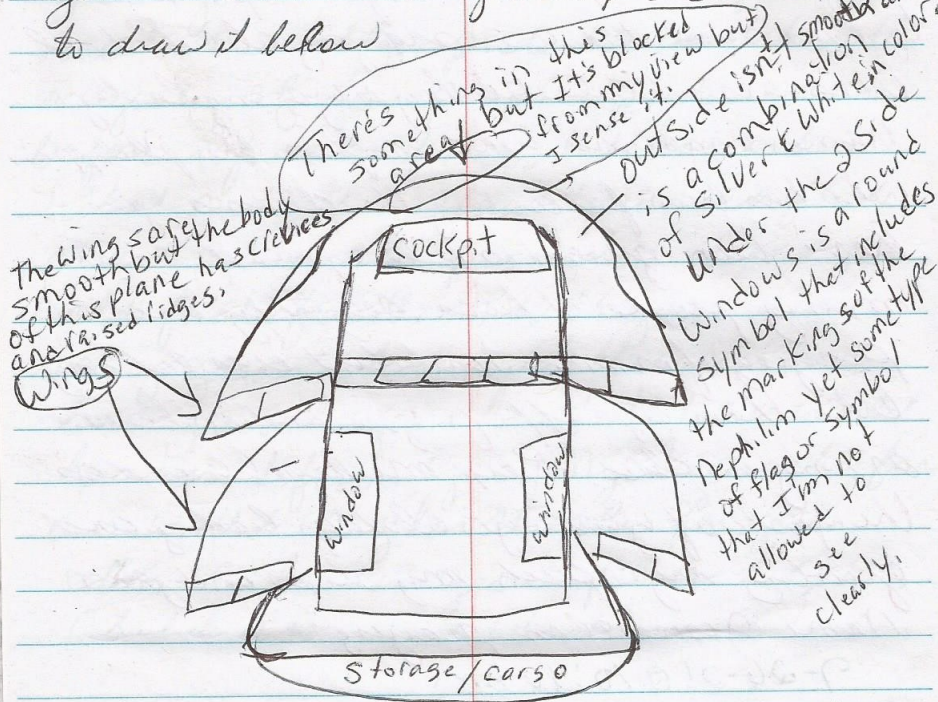 to draw it below
There's
something in this
area but It's blocked
from my view but
I sense it.
outside isn't smooth
is a combination
of Silver & White in color.
under the 2 side
windows is a round
symbol that includes
the markings of the
Nephilim yet some type
of flag or symbol
that I'm not
allowed to
see
clearly.
the wings are
smooth but the body
of this plane has crevices
and raised ridges.
Wings
cockpit
window
window
Storage/cargo